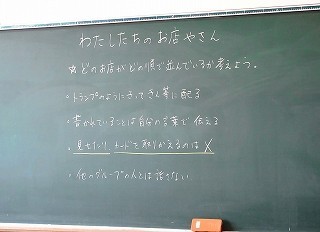 わたしたちのお店やさん
☆どのお店がどの順で並んでいるか考えよう。
・トランプのようにきってきん等に配る
・書かれていることは自分の言葉で伝える
・見せたり、カードを取りかえるのは×
・他のグループの人とは話さない